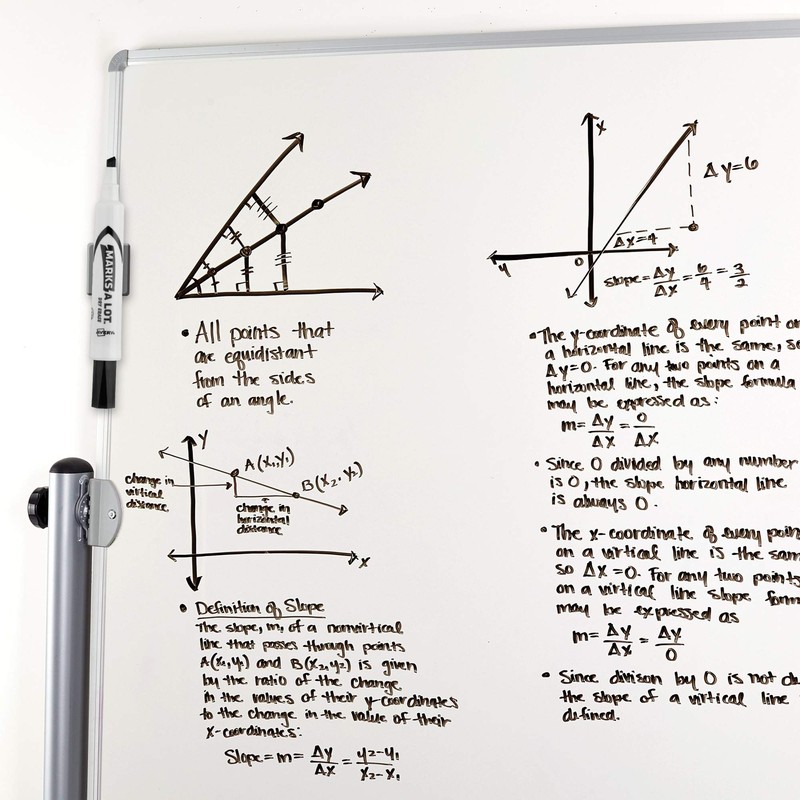 MARKS A LOT.
DRY ERASE
AVERY
• All points that
are equidistant
from the sides
of an angle.
y
A (x₁,y₁)
B (x₂, y₂)
change in
virtical
distance
change in
horizontal
distance
x
• Definition of Slope
The slope, m, of a nonvirtical
line that passes through points
A(x₁,y₁) and B(x₂,y₂) is given
by the ratio of the change
in the values of their y-coordinates
to the change in the value of their
x-coordinates:
Slope = m = Δy/Δx = y₂-y₁/x₂-x₁
x
Δy=6
Δx=4
y
0
slope = Δy/Δx = 6/4 = 3/2
• The y-coordinate of every point on
a horizontal line is the same, so
Δy=0. For any two points on a
horizontal line, the slope formula
may be expressed as:
m = Δy/Δx = 0/Δx
• Since 0 divided by any number
is 0, the slope horizontal line
is always 0.
• The x-coordinate of every poin
on a virtical line is the sam
so Δx=0. For any two points
on a virtical line slope form
may be expressed as
m = Δy/Δx = Δy/0
• Since divison by 0 is not de
the slope of a virtical line
defined.